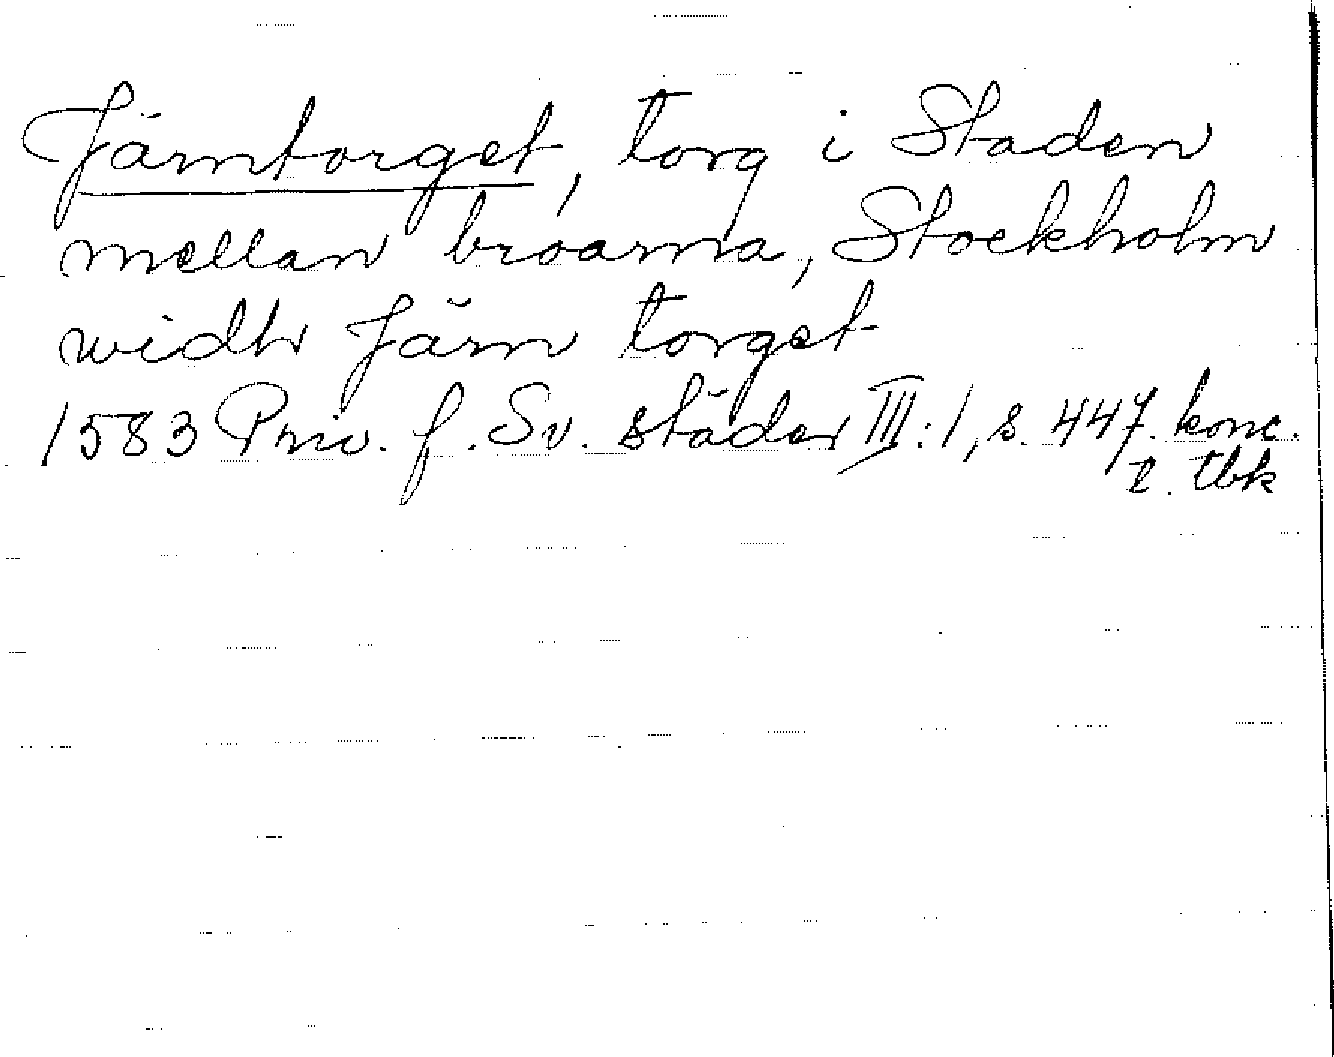 Järntorget, torg i Staden
mellan broarna, Stockholm
widh Järn torget
1583 Priv. f. Sv. städer III:1, s. 447. konc.
l. tbk